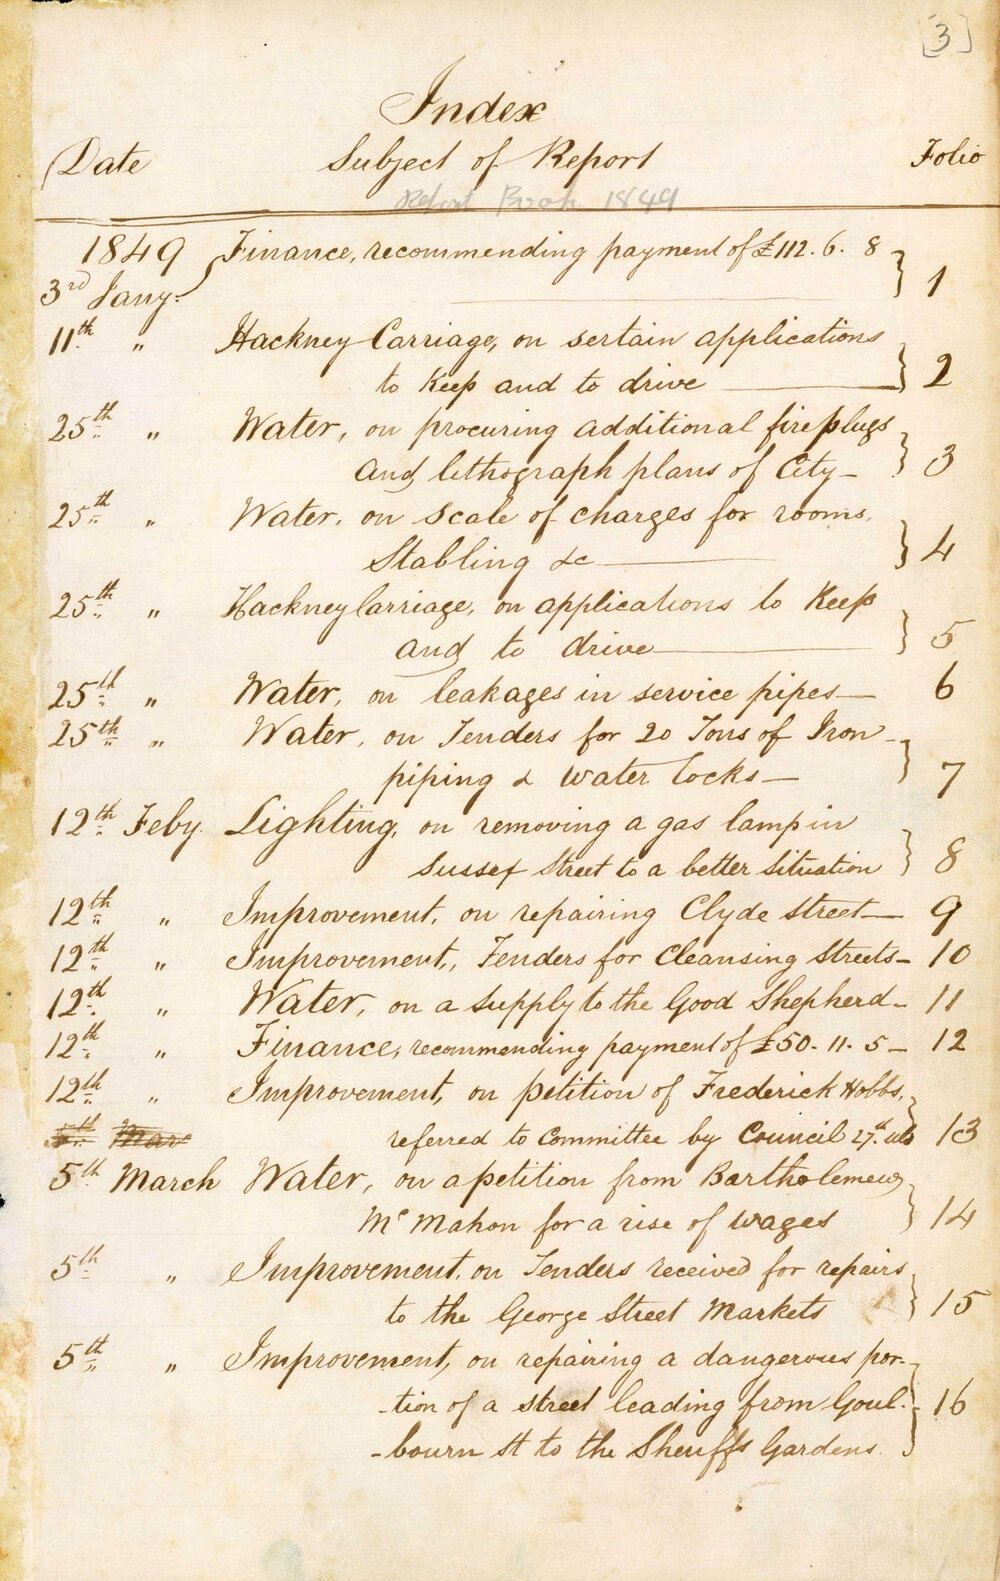 [3]
Index
Date Subject of Report Folio
Report Book 1849
1849 Finance, recommending payment of £112. 6. 8
3rd Jany. 1
11th " Hackney Carriage, on sertain applications
to Keep and to drive 2
25th " Water, on procuring additional fireplugs
and lithograph plans of City 3
25th " Water, on scale of charges for rooms,
Stabling &c 4
25th " Hackney Carriage, on applications to Keep
and to drive 5
25th " Water, on leakages in service pipes 6
25th " Water, on Tenders for 20 Tons of Iron
piping & water Cocks 7
12th Feby. Lighting, on removing a gas lamp in
Sussex Street to a better situation 8
12th " Improvement, on repairing Clyde Street 9
12th " Improvement, Tenders for Cleansing Streets 10
12th " Water, on a supply to the Good Shepherd 11
12th " Finance, recommending payment of £50. 11. 5 12
12th " Improvement, on petition of Frederick Hobbs,
5th Mar referred to Committee by Council 27th ulto 13
5th March Water, on a petition from Bartholemew
Mc Mahon for a rise of wages 14
5th " Improvement, on Tenders received for repairs
to the George Street Markets 15
5th " Improvement, on repairing a dangerous por-
-tion of a street leading from Goul- 16
-bourn St to the Sheriffs Gardens